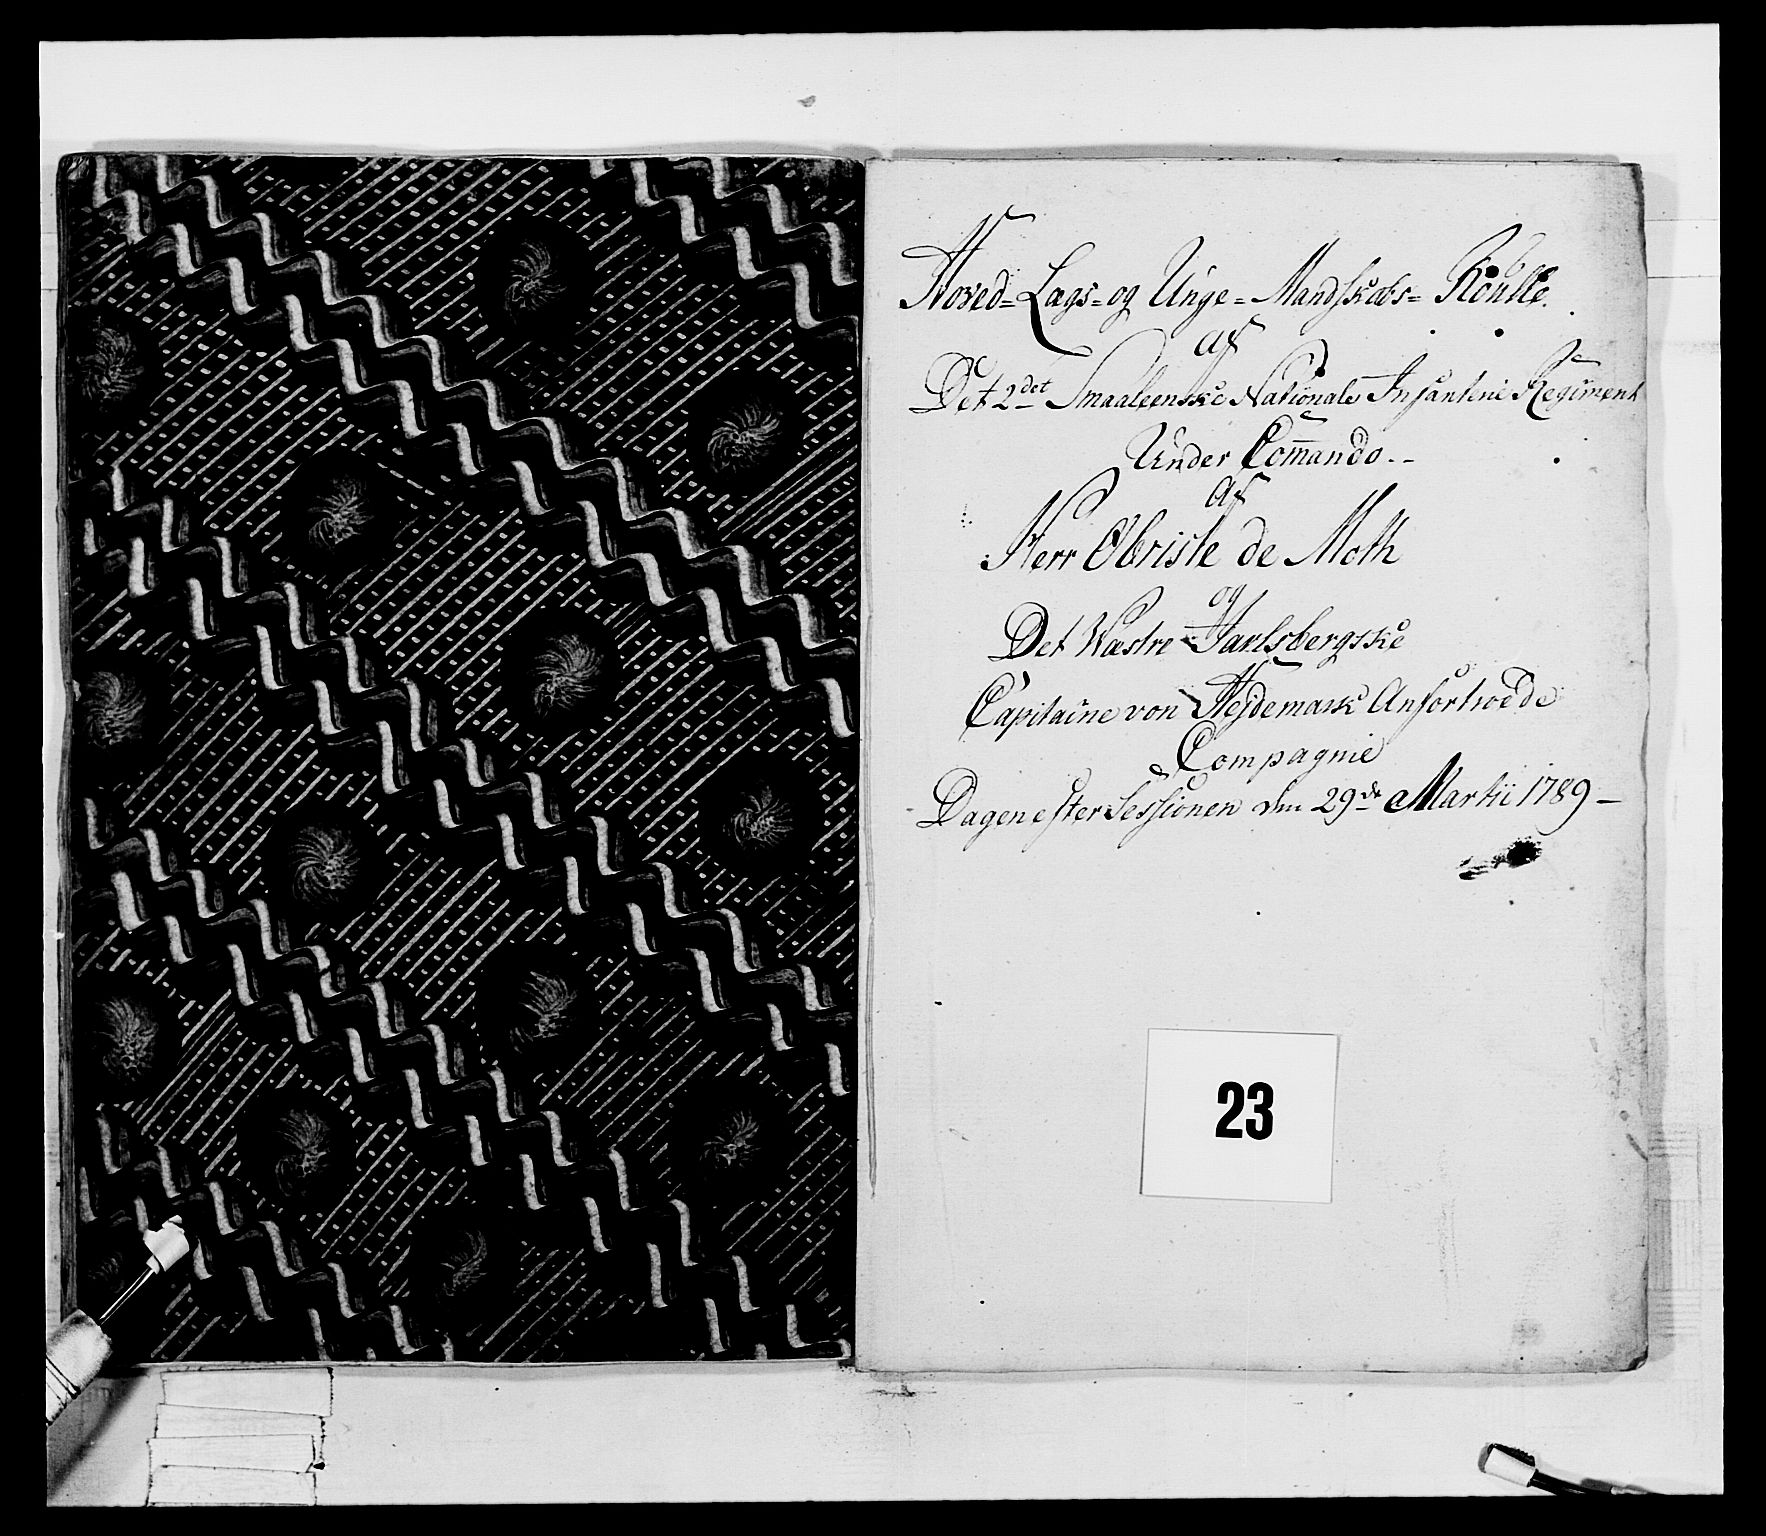 Hoved=Lægs=og Unge=Mandskabs=Roulle.
af
Det 2det Smaaleenske Nationale Infanterie Regiment
Under Com̄ando.--
af
Herr Obriste de Moth
og
Det Wæstre Jarlsbergske
Capitaine von Hejdemark Anfortroede
Compagnie
Dagen efter Sessionen den 29de Martii 1789 –
23